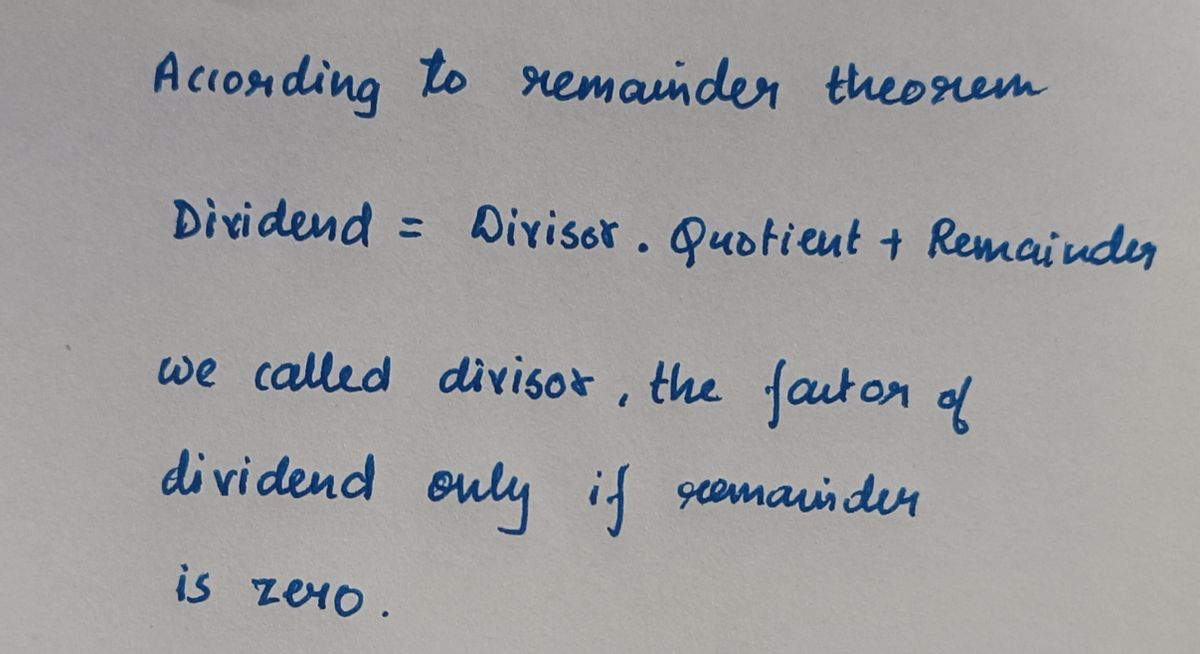 According to remainder theorem
Dividend = Divisor . Quotient + Remainder
we called divisor, the factor of
dividend only if remainder
is zero.